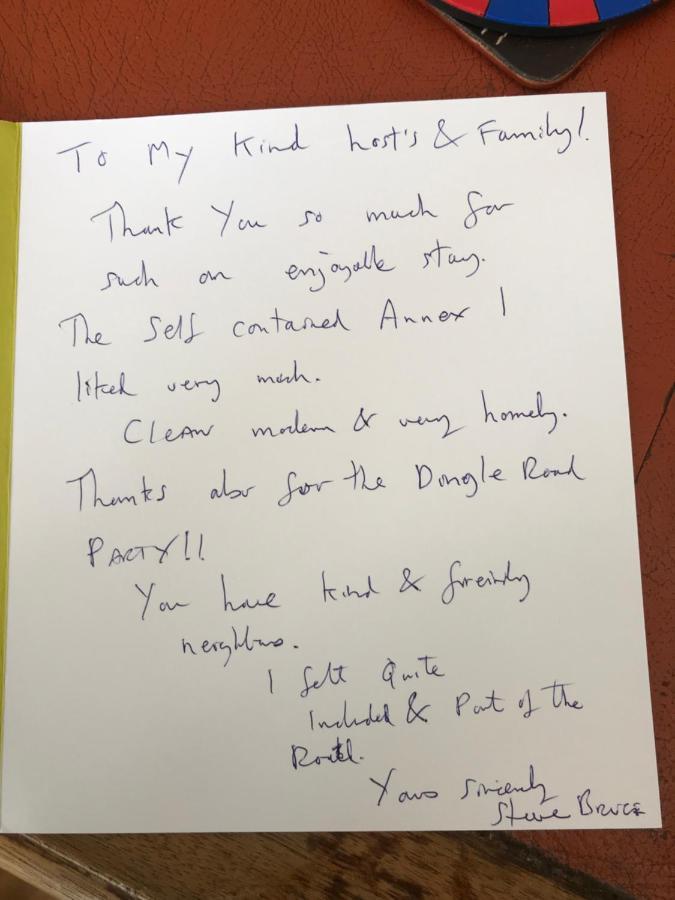 To My Kind host's & Family!
Thank You so much for
such an enjoyable stay.
The Self contained Annex I
liked very much.
Clean modern & very homely.
Thanks also for the Dingle Road
PARTY!!
You have kind & freindly
neighbours.
I felt Quite
Included & Part of the
Yours sincerely
Steve Bruce